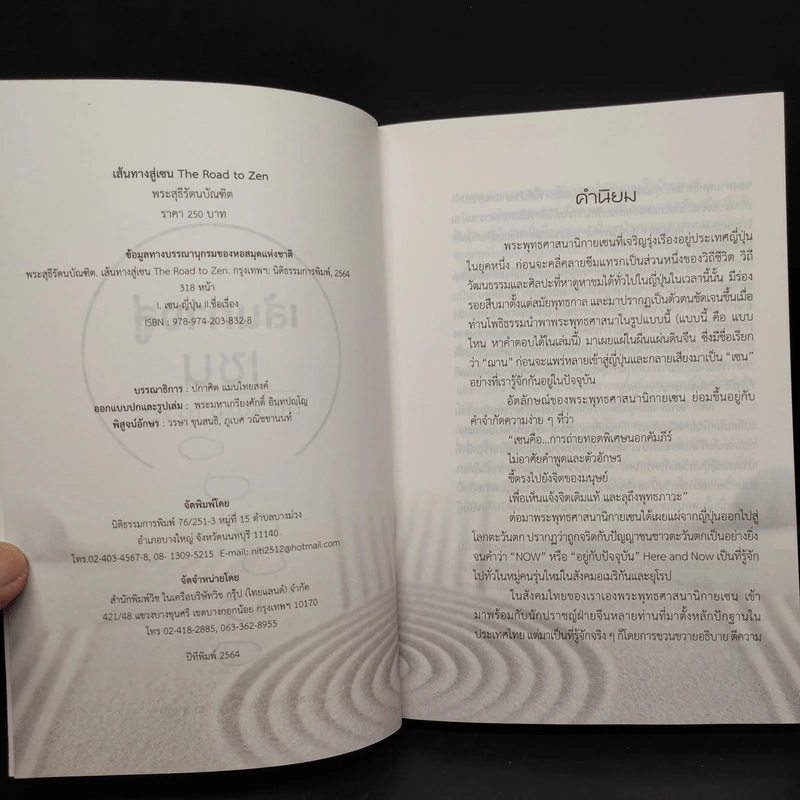 เส้นทางสู่เซน The Road to Zen
พระสุธีรัตนบัณฑิต
ราคา 250 บาท
ข้อมูลทางบรรณานุกรมของหอสมุดแห่งชาติ
พระสุธีรัตนบัณฑิต. เส้นทางสู่เซน The Road to Zen. กรุงเทพฯ: นิติธรรมการพิมพ์, 2564
318 หน้า
I. เซน-ญี่ปุ่น II.ชื่อเรื่อง
ISBN : 978-974-203-832-8
บรรณาธิการ : ปกาศิต แมนไทยสงค์
ออกแบบปกและรูปเล่ม : พระมหาเกรียงศักดิ์ อินฺทปญฺโญ
พิสูจน์อักษร : วรษา ขุนสนธิ, ภูเบศ วณิชชานนท์
จัดพิมพ์โดย
นิติธรรมการพิมพ์ 76/251-3 หมู่ที่ 15 ตำบลบางม่วง
อำเภอบางใหญ่ จังหวัดนนทบุรี 11140
โทร.02-403-4567-8, 08- 1309-5215 E-mail: niti2512@hotmail.com
จัดจำหน่ายโดย
สำนักพิมพ์วิช ในเครือบริษัทวิช กรุ๊ป (ไทยแลนด์) จำกัด
421/48 แขวงบางขุนศรี เขตบางกอกน้อย กรุงเทพฯ 10170
โทร 02-418-2885, 063-362-8955
ปีที่พิมพ์ 2564
คำนิยม
พระพุทธศาสนานิกายเซนที่เจริญรุ่งเรืองอยู่ประเทศญี่ปุ่น
ในยุคหนึ่ง ก่อนจะคลี่คลายซึมแทรกเป็นส่วนหนึ่งของวิถีชีวิต วิถี
วัฒนธรรมและศิลปะที่หาดูหาชมได้ทั่วไปในญี่ปุ่นในเวลานี้นั้น มีร่อง
รอยสืบมาตั้งแต่สมัยพุทธกาล และมาปรากฏเป็นตัวตนชัดเจนขึ้นเมื่อ
ท่านโพธิธรรมนำพาพระพุทธศาสนาในรูปแบบนี้ (แบบนี้ คือ แบบ
ไหน หาคำตอบได้ในเล่มนี้) มาเผยแผ่ในผืนแผ่นดินจีน ซึ่งมีชื่อเรียก
ว่า “ฌาน” ก่อนจะแพร่หลายเข้าสู่ญี่ปุ่นและกลายเสียงมาเป็น “เซน”
อย่างที่เรารู้จักกันอยู่ในปัจจุบัน
อัตลักษณ์ของพระพุทธศาสนานิกายเซน ย่อมขึ้นอยู่กับ
คำจำกัดความง่าย ๆ ที่ว่า
“เซนคือ...การถ่ายทอดพิเศษนอกคัมภีร์
ไม่อาศัยคำพูดและตัวอักษร
ชี้ตรงไปยังจิตของมนุษย์
เพื่อเห็นแจ้งจิตเดิมแท้ และลุถึงพุทธภาวะ”
ต่อมาพระพุทธศาสนานิกายเซนได้เผยแผ่จากญี่ปุ่นออกไปสู่
โลกตะวันตก ปรากฏว่าถูกจริตกับปัญญาชนชาวตะวันตกเป็นอย่างยิ่ง
จนคำว่า “NOW” หรือ “อยู่กับปัจจุบัน” Here and Now เป็นที่รู้จัก
ไปทั่วในหมู่คนรุ่นใหม่ในสังคมอเมริกันและยุโรป
ในสังคมไทยของเราเองพระพุทธศาสนานิกายเซน เข้า
มาพร้อมกับนักปราชญ์ฝ่ายจีนหลายท่านที่มาตั้งหลักปักฐานใน
ประเทศไทย แต่มาเป็นที่รู้จักจริง ๆ ก็โดยการขวนขวายอธิบาย ตีความ